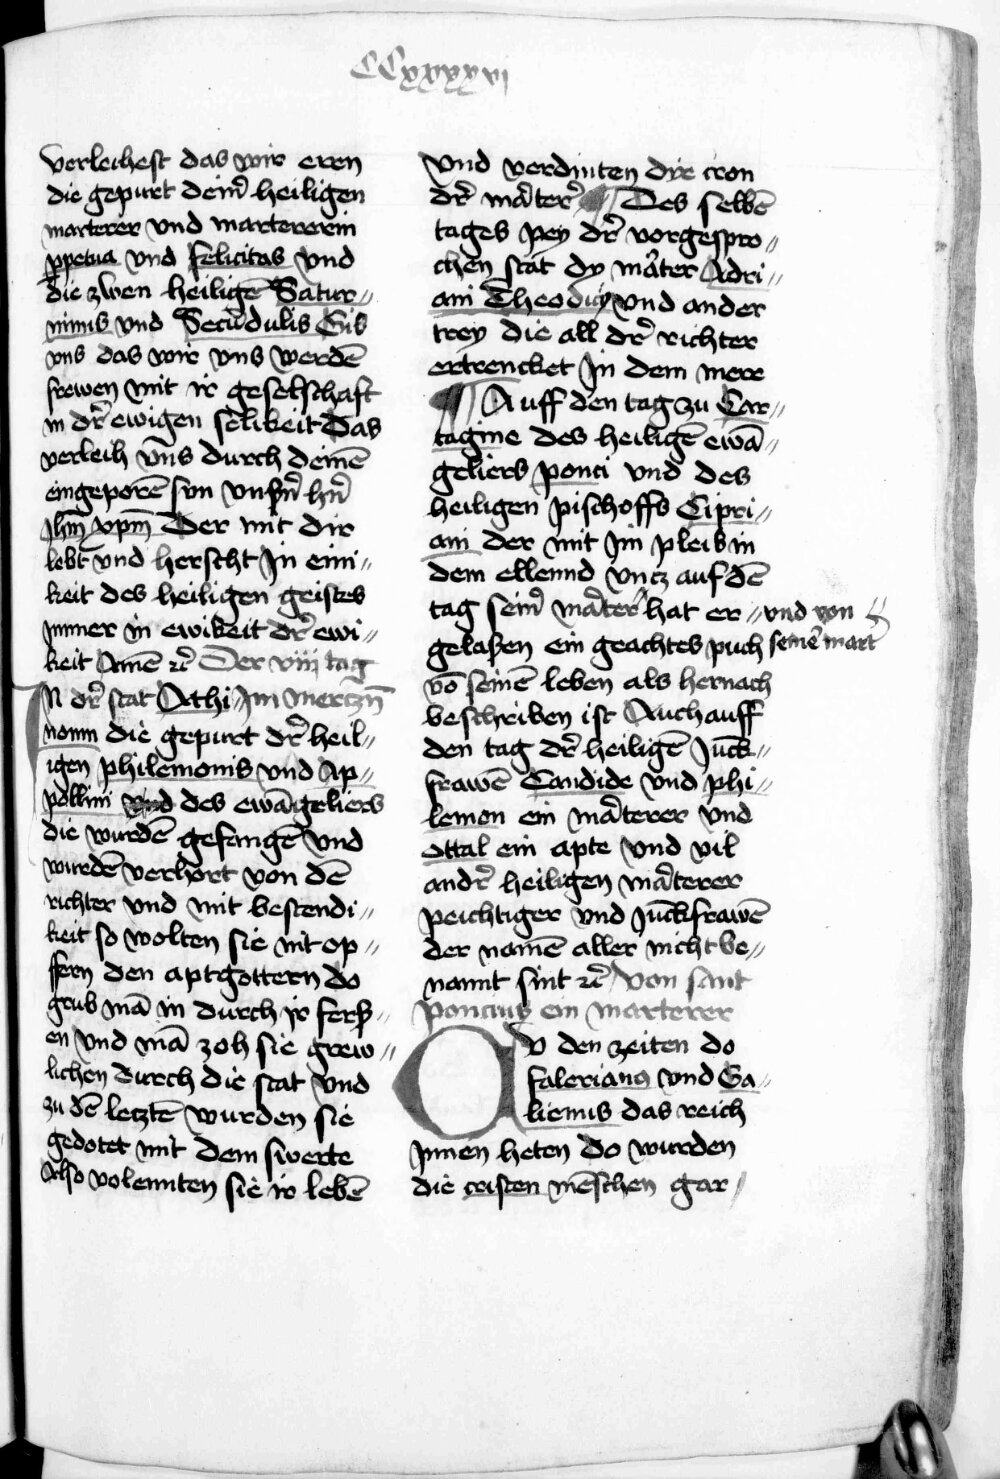 CCxxxxvi
verleihest das wir eren
die gepurt deinr̄ heiligen
marterer vnd martererin
ꝑpetua vnd felicitas vnd
die zwen heiligē Satur〃
ninis vnd Secūdulis Gib
vns das wir vns werdē
frewen mit ir geselschaft
in dr̄ ewigen selikeit Das
verleih vns durch deinē
eingeporē sun vnsr̄n hr̄n
Jhm̄ xpm̄ Der mit dir
lebt vnd herscht Jn eini〃
keit des heiligen geistes
ymmer in ewikeit dr̄ ewi〃
keit Amē ꝛc̄ Der viij tag
IN dr̄ stat Athi〃 Jm Merczn̄
nonn die gepurt dr̄ heil〃
igen philemonis vnd Ap〃
pollini vnd des ewāgeliers
die wurdē gefangē vnd
wurdē verhort von dē
richter vnd mit bestendi〃
keit so wolten sie nit op〃
ffern den aptgottern do
grub mā in durch ir fersß〃
en vnd mā zoh sie grew〃
lichen durch die stat vnd
zu dē letztē wurden sie
gedotet mit dem swerte
Also volennten sie ir lebē
vnd verdinten dye cron
dr̄ māter̄ ¶ Des selbē
tages pey dr̄ vorgespro〃
chen stat dy māter Adri〃
ani Theodicij vnd ander
trey die all dr̄ richter
ertrencket Jn dem mere
¶ Auff den tag zu Car〃
tagine des heiligē ewā〃
geliers ponci vnd des
heiligen pischoffs Cipri〃
ani der mit Jm pleib in
dem ellennd vncz auf dē
tag seinr̄ māter hat er〃 vnd von
gelaßen ein geachtes puch seinē mart̄
vō seinē leben als hernach
beschriben ist Auch auff
den tag dr̄ heiligē Juck〃
frawē Candide vnd phi〃
lemon ein māterer vnd
ottal ein apte vnd vil
andr̄ heiligen māterer
peichtiger vnd Juckfrawē
der namē aller nicht be〃
nannt sint ꝛc̄ von sant
Poncius ein marterer
CV den zeiten do
falerianꝰ vnd Ga〃
lienus das reich
Jnnen heten do wurden
die cristen mēschen gar〃